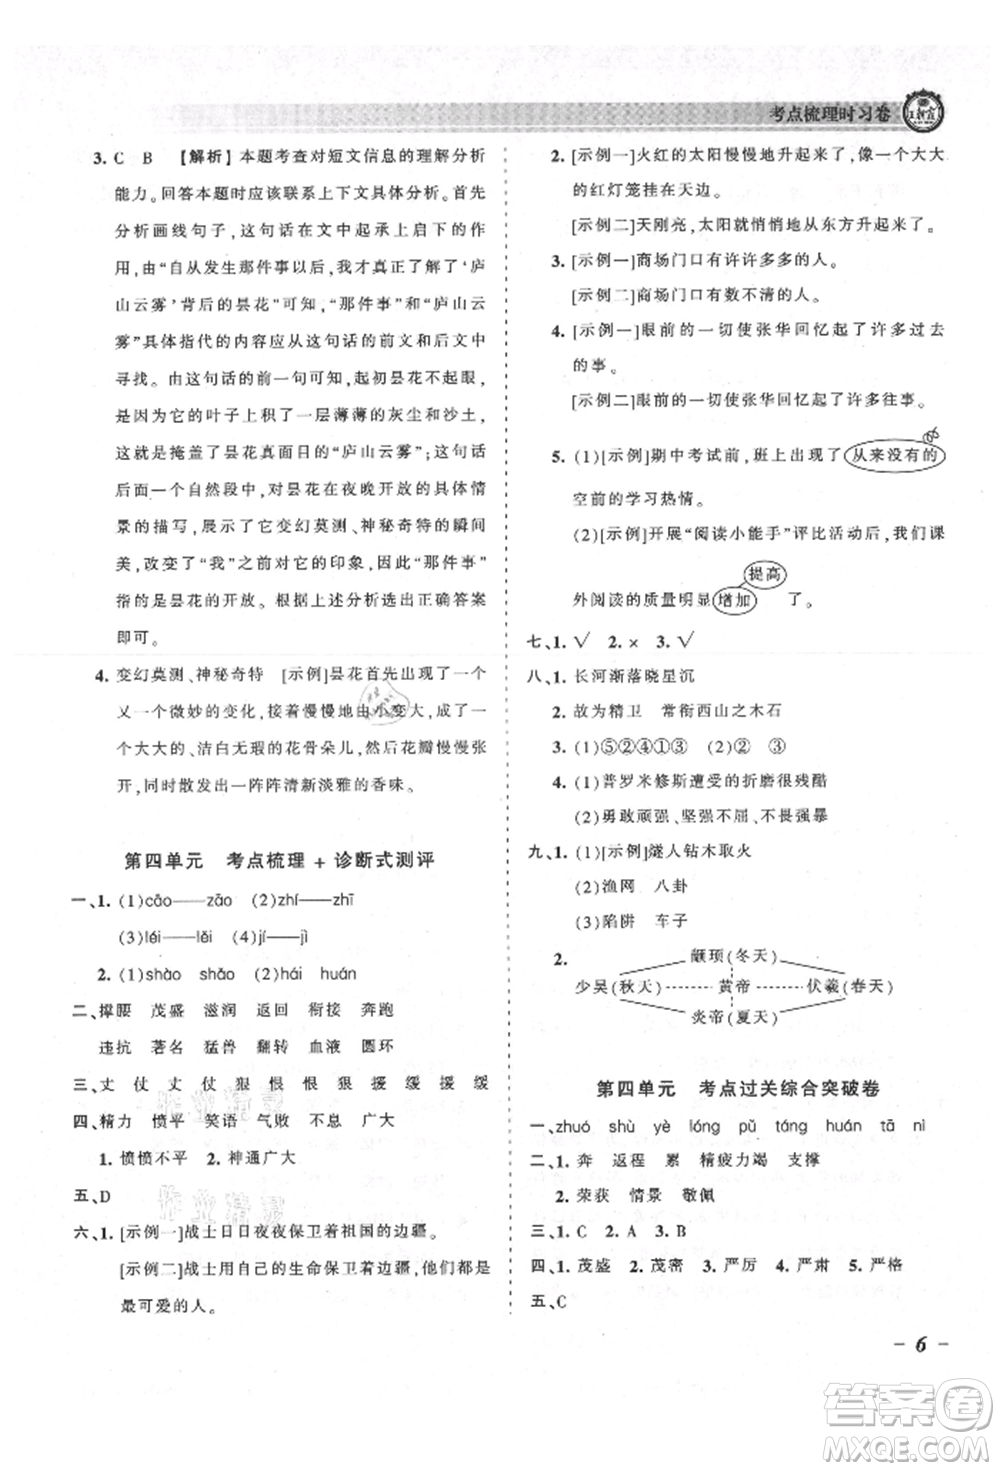 考点梳理时习卷
王朝霞
3. C B 【解析】本题考查对短文信息的理解分析
能力。回答本题时应该联系上下文具体分析。先
分析画线句子，这句话在文中是承上启下的作
用，由“自从发生那件事以后，我才真正了解了‘庐
山云雾’背后的昙花”可知，“那件事”和“庐山云
雾”具体指代的内容应从这句话的前后文中
寻找。由这句话的前一句可知，最初昙花不起眼，
是因为它的叶子上有一层薄薄的灰尘和沙土，
这就是掩盖了昙花真面目的“庐山云雾”，这句话
后面一个自然段中，对昙花在夜晚开放的具体情
景的描写，展示了它变幻莫测、神秘奇特的瞬间
美，改变了“我”对它的印象，因此“那件事”
指的是昙花的开放。根据上述分析选出正确答案
即可。
4. 变幻莫测、神秘奇特 [示例]昙花首先起了一个
又一个微妙的变化，接着慢慢地由小变大，成了一
个大大的、洁白无瑕的花骨朵儿，然后花瓣慢慢张
开，同时散发出一阵阵清新淡雅的香味。
第四单元 考点梳理 + 诊断式测评
一、1. (1)cāo——zāo (2)zhí——zhī
(3)léi——lěi (4)jí——jì
2. (1)shào shāo (2)hái huán
二、撑腰 茂盛 滋润 返回 衔接 奔跑
违抗 著名 猛兽 翻转 血液 圆环
三、丈 仗 丈 仗 狠 狠 狠 援 缓 援 缓
四、精力 愤平 笑语 气败 不息 广大
1. 愤愤不平 2. 神通广大
五、D
六、1. [示例一]战士日日夜夜保卫着祖国的边疆。
[示例二]战士用自己的生命保卫着边疆，他们是
最可爱的人。
2. [示例一]火红的太阳慢慢地升起来了，像一个大大
的红灯笼挂在天边。
[示例二]天刚亮，太阳就悄悄地从东方升起来了。
3. [示例一]商场门口有许许多多的人。
[示例二]商场门口有数不清的人。
4. [示例一]眼前的一切使张华回忆起了许多过去
的事。
[示例二]眼前的一切使张华回忆起了许多往事。
5. (1)[示例]期中考试前，班上出现了从来没有的
空前的学习热情。
(2)[示例]开展“阅读小能手”评比活动后，我们课
提高
外阅读的质量明显增加了。
七、1. √ 2. × 3. √
八、1. 长河渐落晓星沉
2. 故为精卫 常衔西山之木石
3. (1)⑤②④①③ (2)② ③
4. (1)普罗米修斯遭受的折磨很残酷
(2)勇敢顽强、坚强不屈、不畏强暴
九、1. (1)[示例]燧人钻木取火
(2)渔网 八卦
(3)陷阱 车子
2. 颛顼(冬天)
少昊(秋天) 黄帝 伏羲(春天)
炎帝(夏天)
第四单元 考点过关综合突破卷
一、zhuó shù yè lóng pǔ táng huán tā nì
二、1. 奔 返程 累 精疲力竭 支撑
2. 荣获 情景 敬佩
三、1. C 2. A 3. B
四、1. 茂盛 2. 茂密 3. 严厉 4. 严肃 5. 严格
五、C
– 6 –
作业精灵
作业精灵
答案圈
MXQE.COM